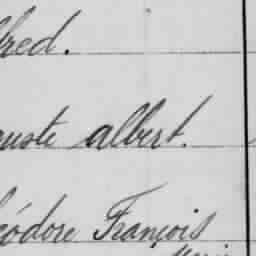 fred.
uste albert.
éodore François